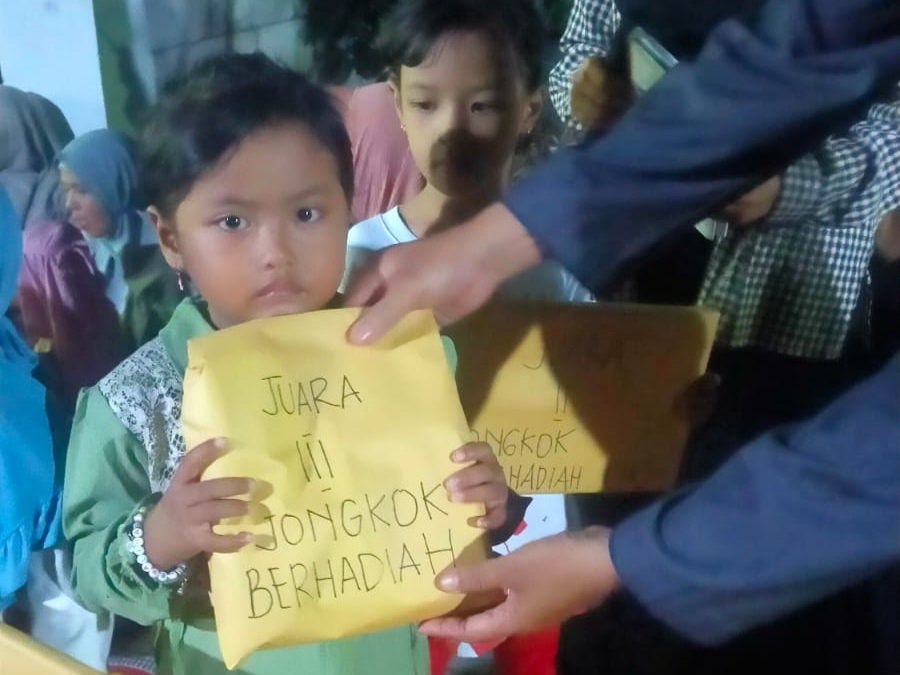 JUARA
III
JONGKOK
BERHADIAH
JUARA
II
JONGKOK
BERHADIAH